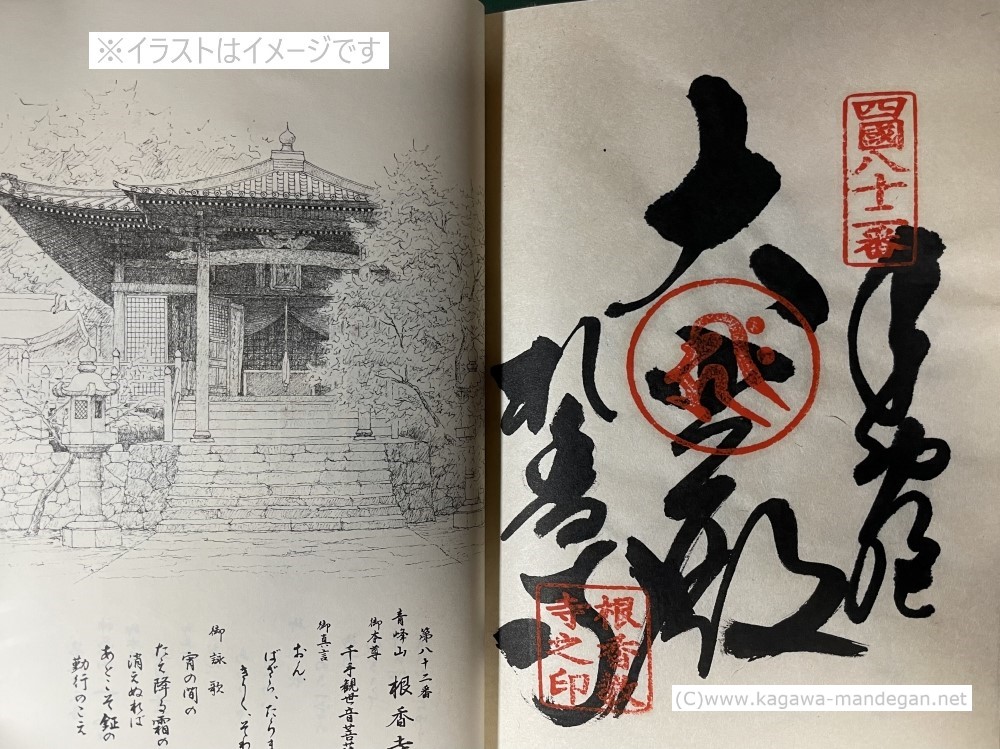 ※イラストはイメージです
第八十二番
青峰山 根香寺
御本尊 千手観世音菩薩
御真言
おん、
ばざら、たらま
きりく、そわ
御詠歌
宵の間の
たえ降る霜の
消えぬれば
あとこそ鉦の
勤行のこえ
四國八十二番
大悲殿
根香寺
根香
寺之印
(C)www.kagawa-mandegan.net